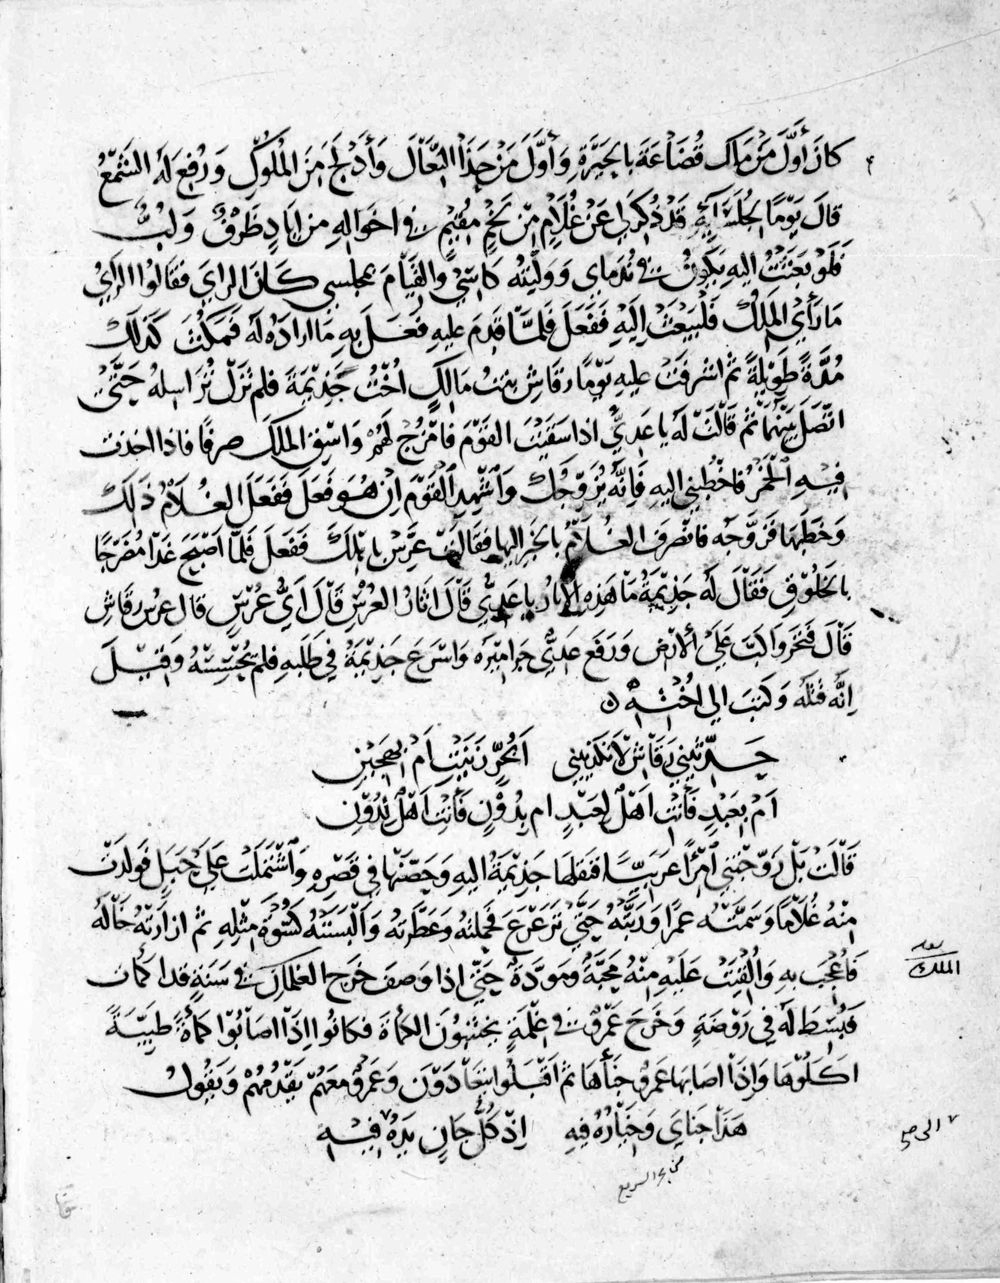 كان أول من ملك قضاعة بالحيرة وأول من حذا النعال وأدلج من الملوك ورفع له الشمع
قال يوما لجلسائه قد ذكر لي عن غلام من لخم مقيم في اخواله من اياد ظرف ولب
فلو بعثت اليه يكون في ندماي ووليته كاسي والقيام بمجلسي كان الراي فقالوا الراي
ما رأي الملك فليبعث إليه ففعل فلما قدم عليه فعل به ما اراده له فمكث كذلك
مدة طويلة ثم اشرفت عليه يوما رقاش بنت مالك أخت جذيمة فلم تزل تراسله حتى
اتصل بينهما ثم قالت له يا عدي اذا سقيت القوم فامزج لهم واسق الملك صرفا فاذا اخذت
فيه الخمر فاخطبني اليه فانه يزوجك وأشهد القوم إن هو فعل ففعل الغلام ذلك
وخطبها فزوجه فانصرف الغلام بالخبر اليها فقالت عرس باهلك ففعل فلما أصبح غدا مضرجا
بالخلوق فقال له جذيمة ما هذه الآثار يا عدي قال اثار العرس قال أي عرس قال عرس رقاش
قال فنخر واكب على الأرض ورفع عدي جراميزه واسرع جذيمة في طلبه فلم يحسسه وقيل
إنه قتله وكتب الى أخته ه
حدثيني رقاش لا تكذبيني أبحر زنيت أم بهجين
أم بعبد فأنت اهل لعبد ام بدون فأنت اهل لدون
قالت بل زوجتني امرأ عربيا فنقلها جذيمة اليه وحصنها في قصره واشتملت على حبل فولدت
منه غلاما وسمته عمرا وربته حتى ترعرع فحلته وعطرته وألبسته كسوة مثله ثم ازارته خاله
فأعجب به وألقيت عليه منه محبة ومودة حتى اذا وصف خرج الغلمان في سنة قد اكمأت
فبسط له في روضة وخرج عمرو في غلمة يجتنون الكمأة فكانوا اذا اصابوا كمأة طيبة
اكلوها واذا اصابها عمرو خبأها ثم اقبلوا يتعادون وعمرو معهم يقدمهم ويقول
هذا جناي وخياره فيه إذ كل جان يده فيه
من بحر السريع
الملك